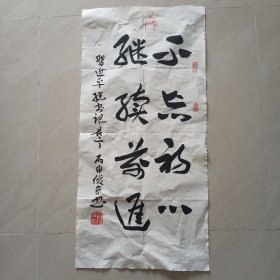 不忘初心
继续前进
习近平总书记其下 丙申